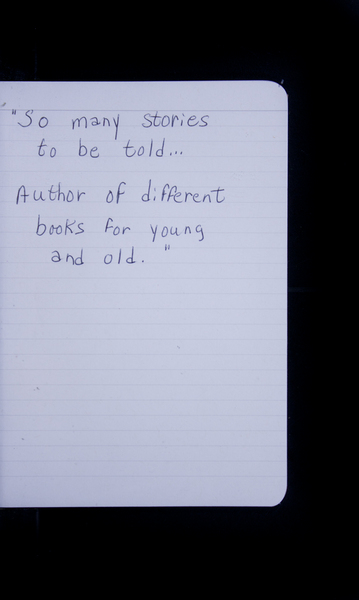 "So many stories
to be told...
Author of different
books for young
and old."